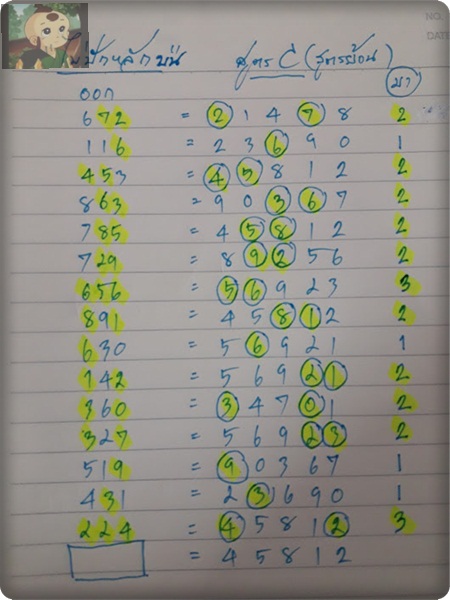 NO.
DATE
ปักหลักบน สูตร C (สูตรย้อน)
ออก มา
672 = 2 1 4 7 8 2
116 = 2 3 6 9 0 1
453 = 4 5 8 1 2 2
863 = 9 0 3 6 7 2
785 = 4 5 8 1 2 2
729 = 8 9 2 5 6 2
656 = 5 6 9 2 3 3
891 = 4 5 8 1 2 2
630 = 5 6 9 2 1 1
142 = 5 6 9 2 1 2
360 = 3 4 7 0 1 2
327 = 5 6 9 2 3 2
519 = 9 0 3 6 7 1
431 = 2 3 6 9 0 1
224 = 4 5 8 1 2 3
= 4 5 8 1 2